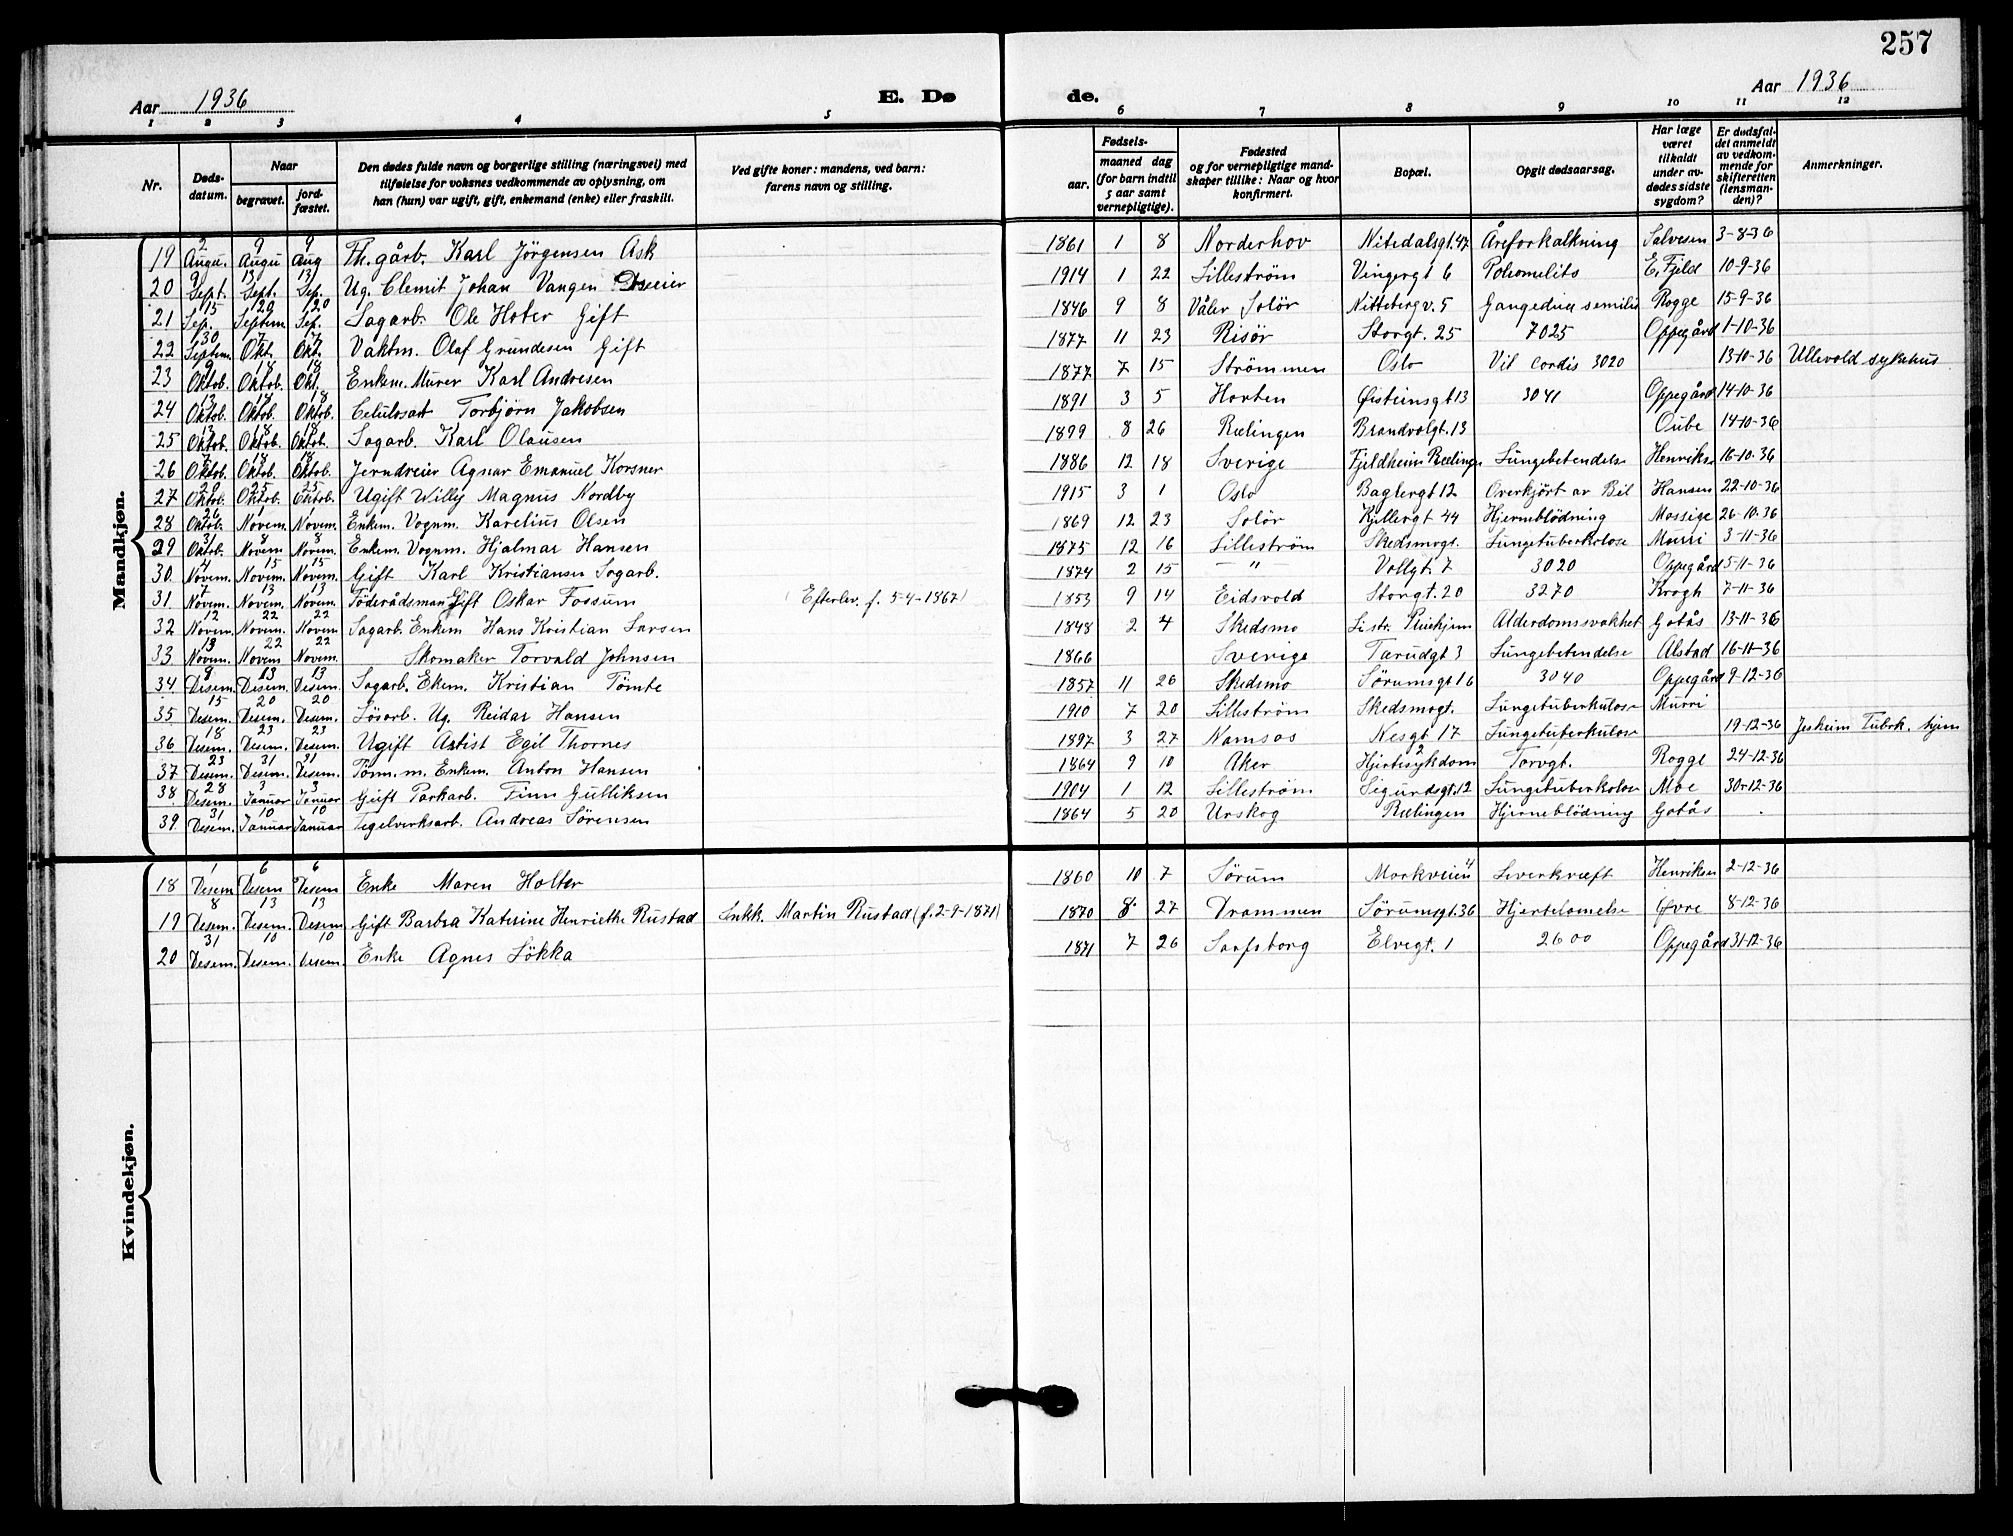 257
Aar 1936
E. Dø
de.
Aar 1936
1 2 3 4 5 6 7 8 9 10 11 12
Nr.
Døds-
datum.
Naar
begravet.
jord-
fæstet.
Den dødes fulde navn og borgerlige stilling (næringsvei) med
tilføielse for voksnes vedkommende av oplysning, om
han (hun) var ugift, gift, enkemand (enke) eller fraskilt.
Ved gifte koner: mandens, ved barn:
farens navn og stilling.
Fødsels-
aar.
maaned dag
(for barn indtil
5 aar samt
vernepligtige).
Fødested
og for vernepligtige mand-
skaper tillike: Naar og hvor
konfirmert.
Bopæl.
Opgit dødsaarsag.
Har læge
været
tilkaldt
under av-
dødes sidste
sygdom?
Er dødsfal-
det anmeldt
av vedkom-
mende for
skifteretten
(lensman-
den)?
Anmerkninger.
Mandkjøn.
19 2 Augu. 9 Augu 9 Aug Th. gårb. Karl Jörgensen Ask 1861 1 8 Norderhov Nitedalsgt. 47 Åreforkalkning Salvesen 3-8-36
20 9 Sept. 13 Sept. 13 Sep. Ug. Clemit Johan Vangen 1914 1 22 Lilleström Vingergt 6 Poliomelits E. Fjeld 10-9-36
21 15 Sep. 20 Septem. 20 Sep. Sagarb. Ole Holter Gift 1846 9 8 Våler Solör Nitteberg v. 5 Rogge 15-9-36
22 30 Septem. 7 Okt. 7 Okt. Vaktm. Olaf Grundesen Gift 1877 11 23 Risör Storgt. 25 7025 Oppegård 1-10-36
23 9 Oktob. 18 Oktob. 18 Okt. Enkem. Murer Karl Andresen 1877 7 15 Strömmen Oslo Vit cordis 3020 13-10-36 Ullevold sykehus
24 13 Oktob. 18 Oktob. 18 Oktob. Celulosarb Torbjörn Jakobsen 1891 3 5 Horten Østeinsgt 13 3041 Oppegård 14-10-36
25 Oktob. 18 Oktob. 18 Oktob. Sagarb. Karl Olausen 1899 8 26 Rælingen Brandvolgt. 13 Oube 14-10-36
26 7 Oktob. 18 Oktob. 18 Oktob. Jerndreier Agnar Emanuel Korsner 1886 12 18 Sverige Fjeldheim Rælingen Lungebetendelse Henrikse 16-10-36
27 20 Oktob. 25 Oktob. 25 Oktob. Ugift Willy Magnus Nordby 1915 3 1 Oslo Baglergt 12 Overkjört av Bil Hansen 22-10-36
28 26 Oktob. 1 Novem. 1 Novem. Enkem. Vognm. Karelius Olsen 1869 12 23 Solör Kjellergt 44 Hjerneblödning Mossige 26-10-36
29 31 Oktob. 8 Novem 8 Novem. Enkem. Vognm. Hjalmar Hansen 1875 12 16 Lilleström Skedsmogt. Lungetuberkolose Murri 3-11-36
30 4 Novem. 15 Novem. 15 Novem. Gift Karl Kristiansen Sagarb. 1874 2 15 — " — Vollgt. 7 3020 Oppegård 5-11-36
31 7 Novem. 13 Novem. 13 Novem. Föderådsman Gift Oskar Fossum (Efterlev. f. 5-4-1867) 1853 9 14 Eidsvold Storgt. 20 3270 Krogh 7-11-36
32 12 Novem. 22 Novem. 22 Novem Sagarb. Enkem Hans Kristian Larsen 1848 2 4 Skedsmo Listr. Pleiehjem Alderdomssvakhet Gotås 13-11-36
33 13 Novem. 22 Novem 22 Novem. Skomaker Torvald Johnsen 1866 Sverige Tærudgt 3 Lungebetendelse Alstad 16-11-36
34 8 Desem. 13 Desem. 13 Desem. Sagarb. Ekem. Kristian Tömte 1857 11 26 Skedsmo Sörumsgt 16 3040 Oppegård 9-12-36
35 15 Desem. 20 Desem. 20 Desem. Lösarb. Ug. Reidar Hansen 1910 7 20 Lilleström Skedsmogt. Lungetuberkulose Murri
36 18 Desem. 23 Desem. 23 Desem. Ugift Artist Egil Thornes 1897 3 27 Namsos Nesgt 17 Lungetuberkulose 19-12-36 Jesheim Tubrk. hjem
37 23 Desem. 31 Desem. 31 Desem. Tömm. m. Enkem. Anton Hansen 1864 9 10 Aker Hjertesykdom 2 Torvgt. Rogge 24-12-36
38 28 Desem. 3 Januar 3 Januar Gift Parkarb. Finn Gulliksen 1904 1 12 Lilleström Sigurdsgt. 12 Lungetuberkolose Moe 30-12-36
39 31 Desem. 10 Januar 10 Januar Tegelverksarb. Andreas Sörensen 1864 5 20 Urskog Rælingen Hjerneblödning Gotås
Kvindekjøn.
18 1 Desem 6 Desem 6 Desem Enke Maren Holter 1860 10 7 Sörum Markveien 4 Leverkræft Henriksen 2-12-36
19 8 Desem. 13 Desem. 13 Desem Gift Barbra Katerine Henriethe Rustad Enkk. Martin Rustad (f. 2-9-1871) 1870 8 27 Drammen Sörumsgt. 36 Hjertelamelse Øvre 8-12-36
20 31 Desem. 10 Desem. 10 Desem. Enke Agnes Lökka 1871 7 26 Sarpsborg Elvegt. 1 2600 Oppegård 31-12-36